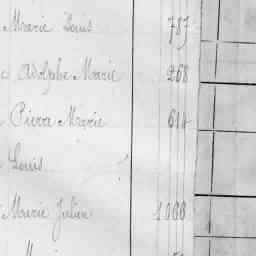 Marie Louis 787
e Adolphe Marie 268
e Pierre Marie 614
e Louis
e Marie Julien 1088